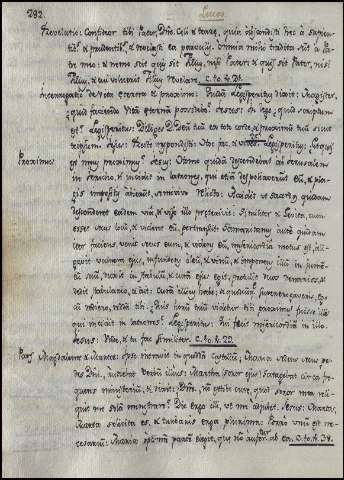 292. Lucas
Revelatio: Confiteor tibi Pater, Dñe Cœli & terræ, quia abscondisti hæc à sapientib9 & prudentib9, & revelasti ea parvulis. Omnia mihi tradita sunt à Patre meo: & nemo scit quis sit Filius, nisi Pater: & quis sit Pater, nisi Filius, & cui voluerit Filius revelare. C. 10. v. 21.
de vita æterna & proximo: Quidam legisperitus dixit: Magister, quid faciendo vitã æternã possidebo? Jesus: In lege quid scriptum est? Legisperitus: Diliges D. Deũ tuũ ex toto corde, & proximũ tuũ sicut teipsum. Jesus: Recte respondisti: Hoc fac, & vives. Legisperitus: Et quis
Proximus. est meus proximus? Jesus: Homo quidã descendebat ab Jerusalem in Jericho, & incidit in latrones, qui etiã despoliaverunt eũ, & plagis impositis abierunt, semivivo relicto. Accidit ut sacerdos quidam descenderet eadem via, & viso illo præterivit. Similiter & Levita, cum esset secus locũ, & videret eũ, pertransiit. Samaritanus autẽ quidam iter faciens, venit secus eum, & videns eũ, misericordia motus est, alligavit vulnera ejus, infundens oleũ, & vinũ, & imponens illũ in jumentũ suũ, duxit in stabulũ, & curã ejus egit, protulit duos denarios, & dedit stabulario, & ait: Curã illius habe: & quodcunque supererogaveris, ego cũ rediero, reddã tibi. Quis horũ triũ videtur tibi proximus fuisse illi qui incidit in latrones? Legisperitus: Qui fecit misericordiã in illo.
Jesus: Vade, & tu fac similiter. C. 10. v. 25.
Pars Magdalenæ & Marthæ: Ipse intravit in quoddã castellũ; Maria sedens secus pedes Dñi, audiebat verbũ illius: Martha soror ejus satagebat circa frequens ministeriũ, & dixit: Dñe, nõ est tibi curæ, quod soror mea reliquit me solã ministrare? Dic ergo illi, ut me adjuvet. Jesus: Martha, Martha sollicita es, & turbaris erga plurima: Porro unũ est necessariũ: Maria optimã partẽ elegit, quæ nõ auferetur ab ea. C. 10. v. 38.